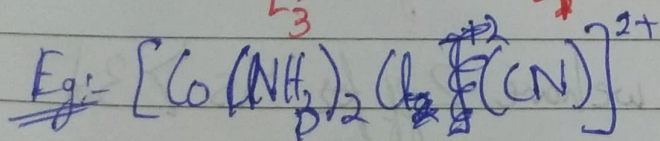 3
Eg:- [Co(NH3)2 Cl (CN)]2+